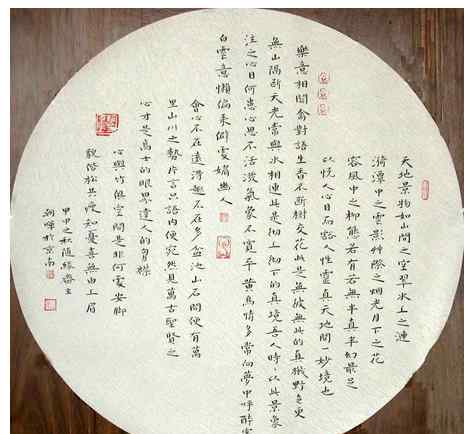 天地景物如山間之空翠水上之漣
漪潭中之雲影草際之烟光月下之花
容風中之柳態若有若無半真半幻最足
以悦人心目而豁人性靈真天地間一妙境也
樂意相関禽對語生香不断樹交花此是無彼無此的真機野色更
無山隔断天光常與水相連此是徹上徹下的真境吾人時時以此景象
注之心目何患心思不活潑氣象不寬平 黄鳥情多常向夢中呼醉
白雲意懶偏來僻處媚幽人
會心不在遠得趣不在多盆池山石間便有萬
里山川之勢片言只語内便宛然見萬古聖賢之
心才是高士的眼界達人的胸襟
心與竹俱空問是非何處安脚
貌偕松共瘦知憂喜無由上眉
之秋随緣齋主
於京南